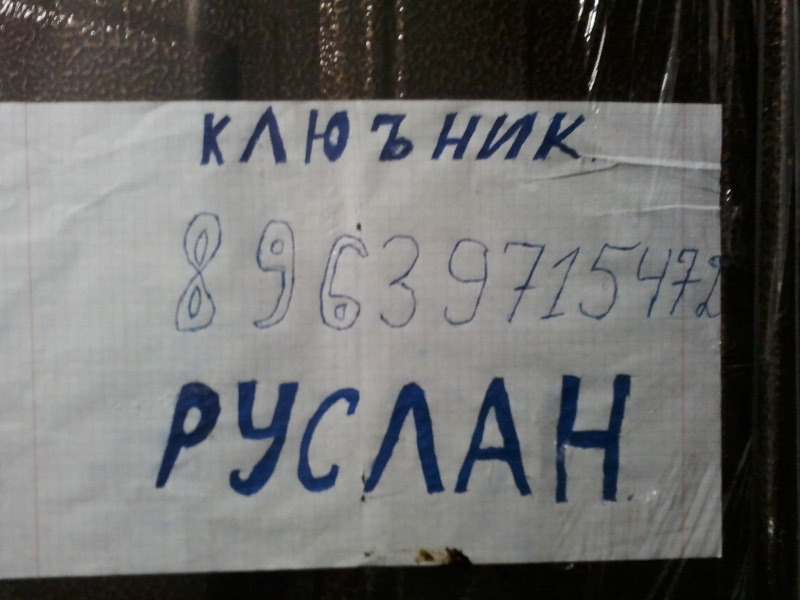 КЛЮЪНИК.
89639715472
РУСЛАН.